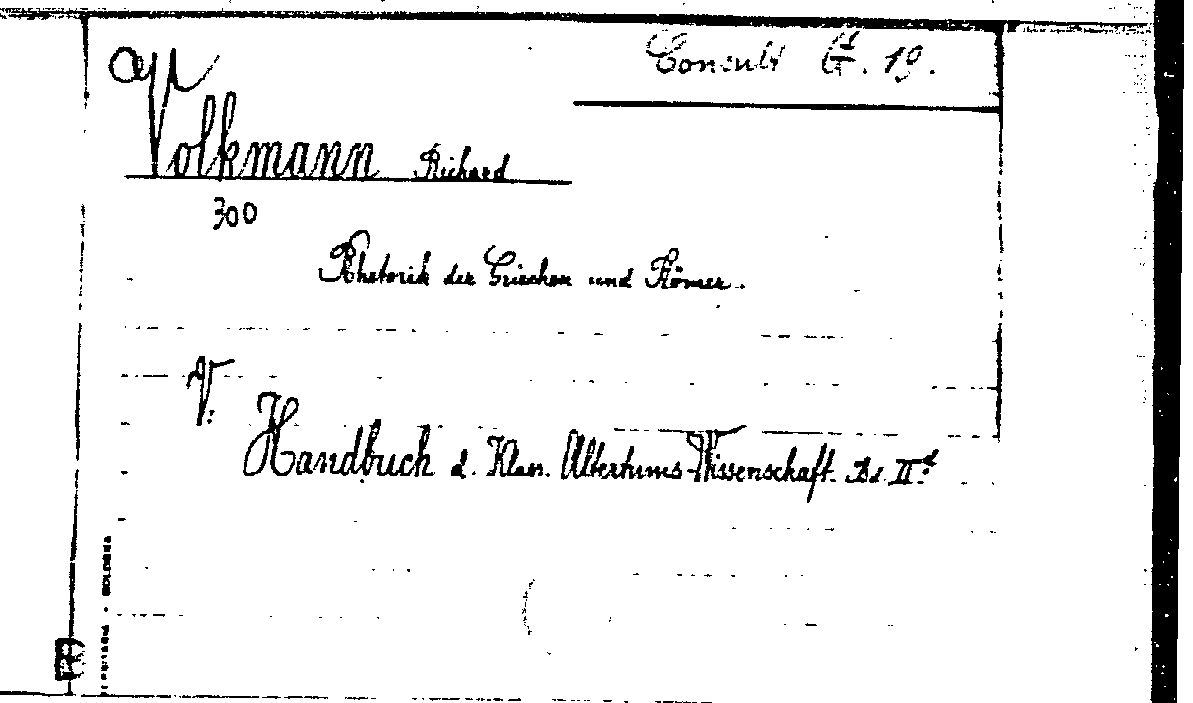 Consult G. 19.
Volkmann Richard
300
Rhetorik der Griechen und Römer.
V.
Handbuch d. Klass. Alterthums-Wissenschaft. Bd. II
BOLOGNA